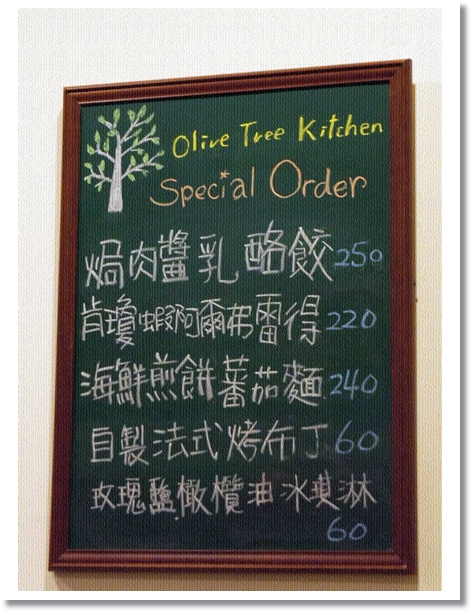 Olive Tree Kitchen
Special Order
焗肉醬乳酪餃 250
肯瓊蝦阿爾弗雷得 220
海鮮煎餅蕃茄麵 240
自製法式烤布丁 60
玫瑰鹽橄欖油冰淇淋
60